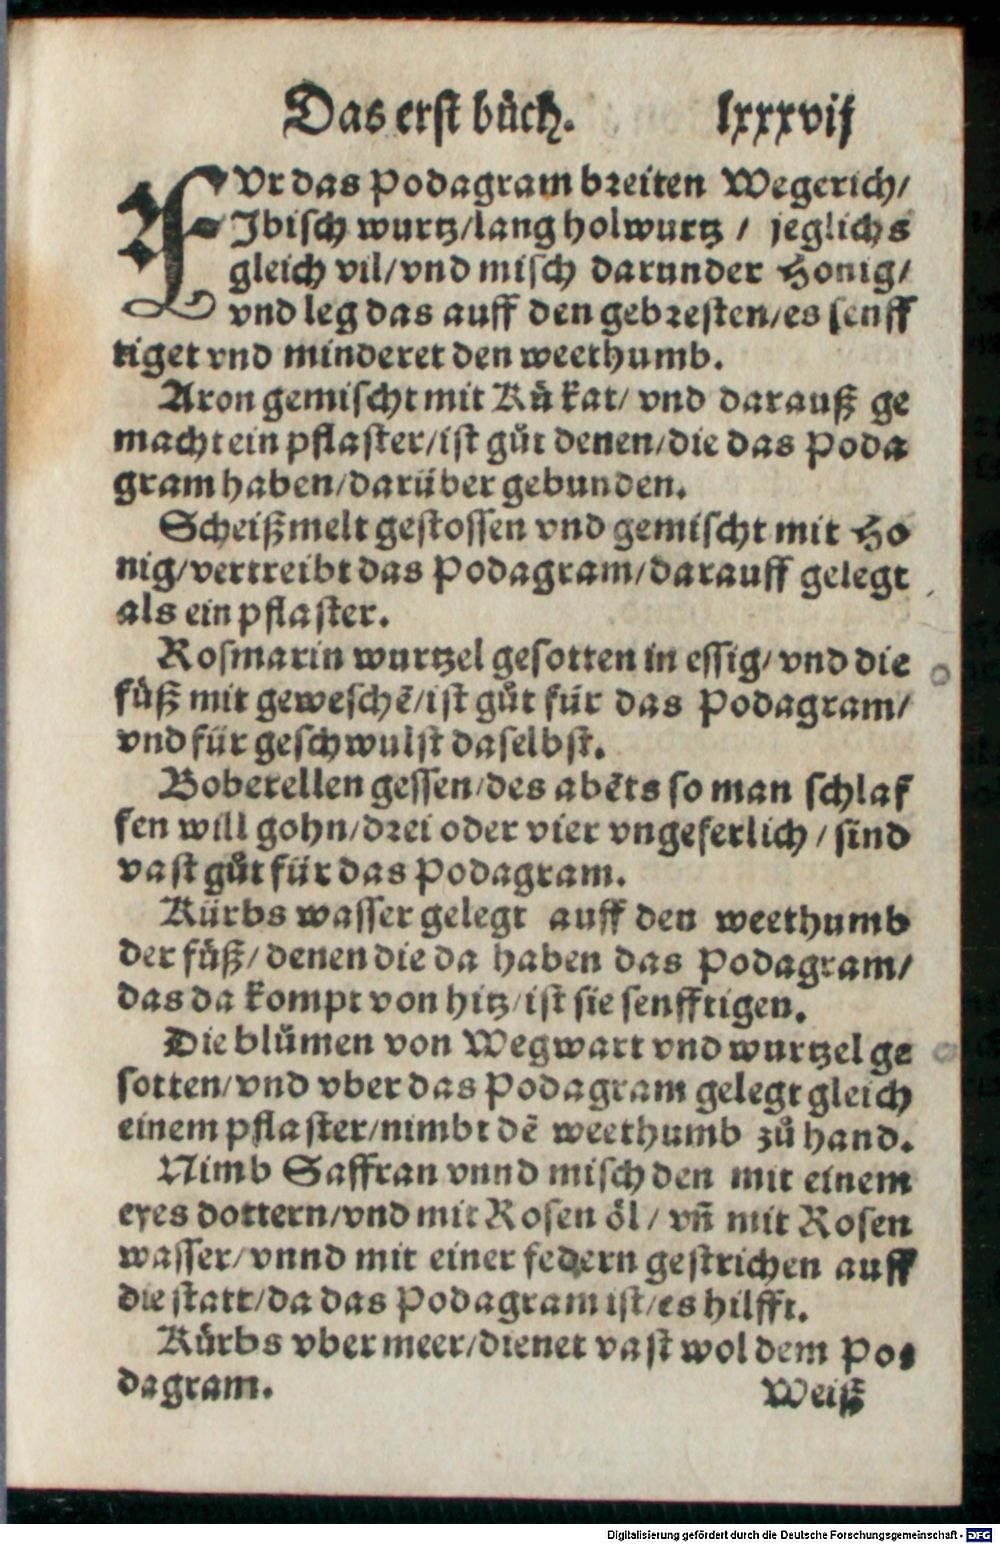 Das erst bůch. lxxxvij
FVr das Podagram breiten Wegerich/
Jbisch wurtz/lang holwurtz / jeglichs
gleich vil/vnd misch darunder Honig/
vnd leg das auff den gebresten/es senff
tiget vnd minderet den weethumb.
Aron gemischt mit Ků kat/ vnd darauß ge
macht ein pflaster/ist gůt denen/die das Poda
gram haben/darüber gebunden.
Scheißmelt gestossen vnd gemischt mit Ho
nig/vertreibt das Podagram/darauff gelegt
als ein pflaster.
Rosmarin wurtzel gesotten in essig/ vnd die
fůß mit geweschẽ/ist gůt für das Podagram/
vnd für geschwulst daselbst.
Boberellen gessen/des abẽts so man schlaf
fen will gohn/drei oder vier vngeferlich / sind
vast gůt für das Podagram.
Kürbs wasser gelegt auff den weethumb
der fůß/ denen die da haben das Podagram/
das da kompt von hitz/ist sie senfftigen.
Die blůmen von Wegwart vnd wurtzel ge
sotten/vnd vber das Podagram gelegt gleich
einem pflaster/nimbt dẽ weethumb zů hand.
Nimb Saffran vnnd misch den mit einem
eyes dottern/vnd mit Rosen öl / vñ mit Rosen
wasser/vnnd mit einer federn gestrichen auff
die statt/da das Podagram ist/es hilfft.
Kürbs vber meer/dienet vast wol dem Po⸗
dagram. Weiß
Digitalisierung gefördert durch die Deutsche Forschungsgemeinschaft - DFG